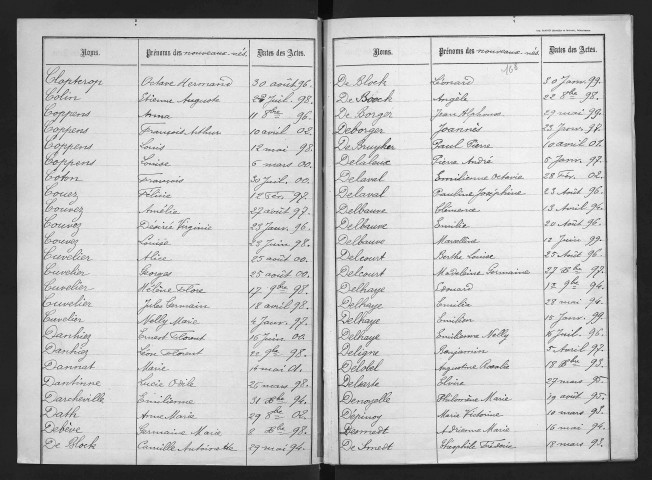 Noms. Prénoms des nouveaux nés. Dates des Actes.
Clopterop Octave Hermand 30 août 96.
Colin Etienne Auguste 28 Juil. 98.
Coppens Anna 11 8bre 96.
Coppens François Arthur 10 avril 02.
Coppens Louis 12 mai 98.
Coppens Louise 6 mars 00.
Coton François 30 Juil. 00.
Couez Féline 12 Fév. 97.
Couvez Amélie 27 août 97.
Couvez Désiré Virginie 23 Janv. 96.
Couvez Louise 23 Juin 98.
Cuvelier Alice 25 août 00.
Cuvelier Georges 25 août 00.
Cuvelier Hélène Flore 17 9bre 98.
Cuvelier Jules Germain 18 avril 98.
Cuvelier Nelly Marie 4 Janv. 97.
Danhiez Ernest Florent 16 Juin 00.
Danhiez Léon Florent 22 9bre 98.
Dannat Marie mai 01.
Dantinne Lucie Odile 26 mars 98.
Darcheville Emilienne 31 Xbre 94.
Dath Anne Marie 29 8bre 02.
Debève Germaine Marie 8 Xbre 98.
De Block Camille Antoinette 29 mai 94.
Noms. Prénoms des nouveaux nés. Dates des Actes.
De Block Léonard 30 Janv. 99.
De Boeck Angèle 22 8bre 98.
De Borger Jean Alphonse 29 mai 99.
Deborger Joannès 23 Janv. 97.
De Bruyker Paul Pierre 10 avril 01.
Delaleux Pierre André 5 Janv. 97.
Delaval Emilienne Octavie 28 Fév. 02.
Delaval Pauline Joséphine 23 Août 96.
Delbauve Clémence 13 Avril 96.
Delbauve Emilie 20 Août 96.
Delbauve 12 Juin 99.
Delcourt Berthe Louise 25 Août 96.
Delcourt Madeleine Germaine 27 Xbre 97.
Delhaye Edouard 12 9bre 96.
Delhaye Emilie 28 mai 94.
Delhaye Emilien 15 Janv. 99.
Delhaye Emilienne Nelly 16 Juil. 96.
Deligne Benjamin 5 Avril 97.
Delobel Augustine Rosalie 18 Xbre 93.
Delsarte Elvire 27 mars 95.
Denoyelle Philomène Marie 19 août 95.
Dépinoy Marie Victorine 10 mars 98.
Desmedt Adrienne Marie 16 mai 94.
De Smedt Théophile Frédéric 18 mars 93.